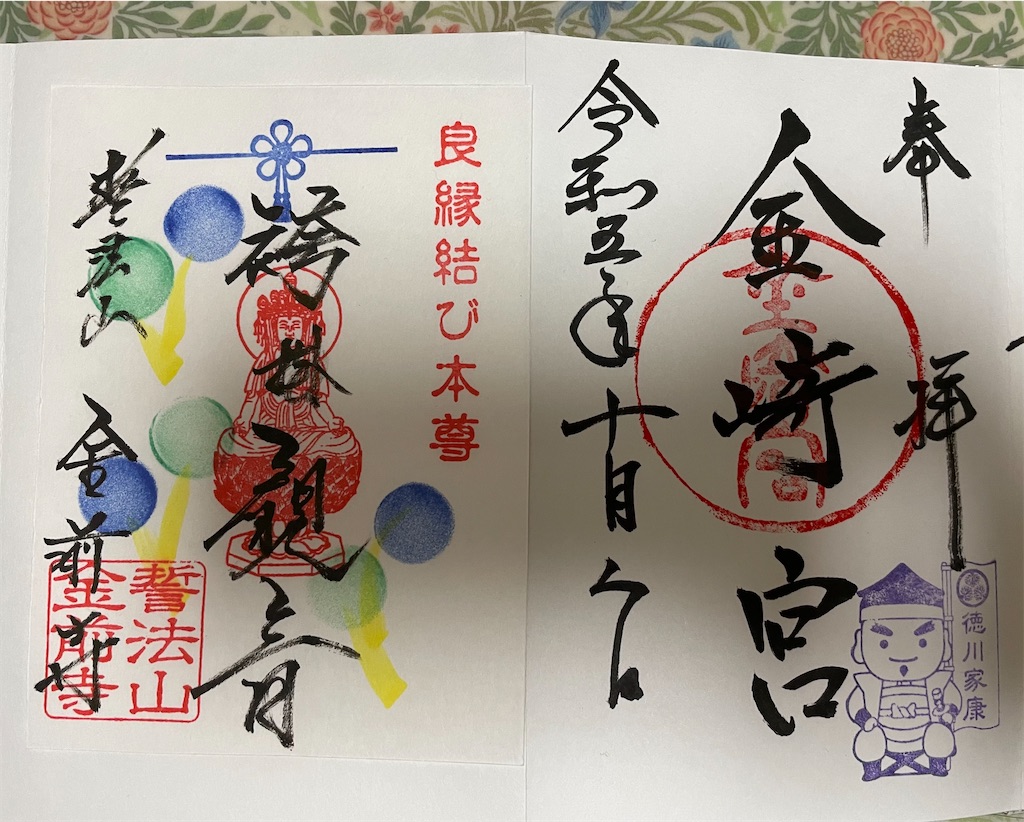 奉拝
徳川家康
金崎宮
金崎宮
令和五年十月日
良縁結び本尊
袴掛観音
誓法山 金前寺
誓法山
金前寺